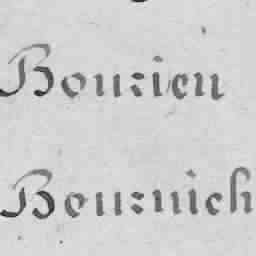 Bourien
Bournich